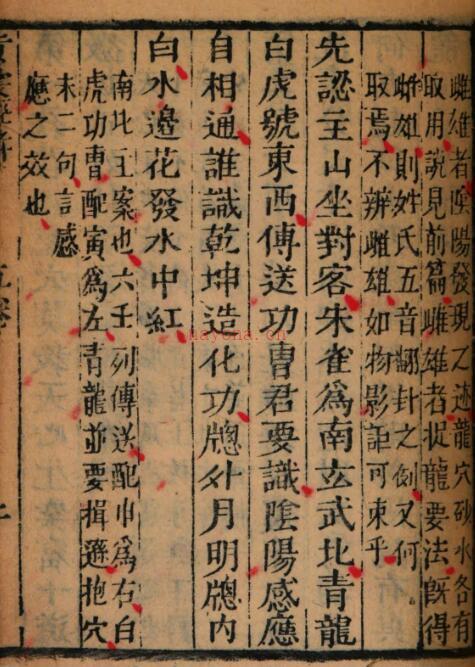 雌雄者陰陽發現之迹龍穴砂水各有
取用說見前篇雌雄者捉龍要法旣得
雌雄則姓氏五音翻封之倒又何
取焉不辨雌雄如物影詎可束乎
先認主山坐對客朱雀爲南玄武北青龍
白虎號東西傳送功曹君要識陰陽感應
自相通誰識乾坤造化功牕外月明牕內
白水邊花發水中紅
南北主案也六壬列傳送配申爲右白
虎功曹配寅爲左青龍並要揖遜抱穴
末二句言感
應之效也
nayona.cn